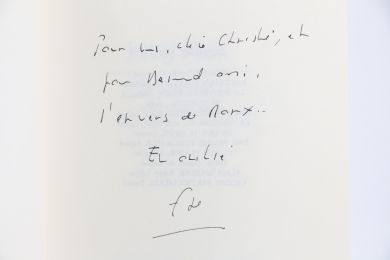 Pour vous, chère Christine, et
pour Bernard aussi,
l'envers de Marx..
En amitié